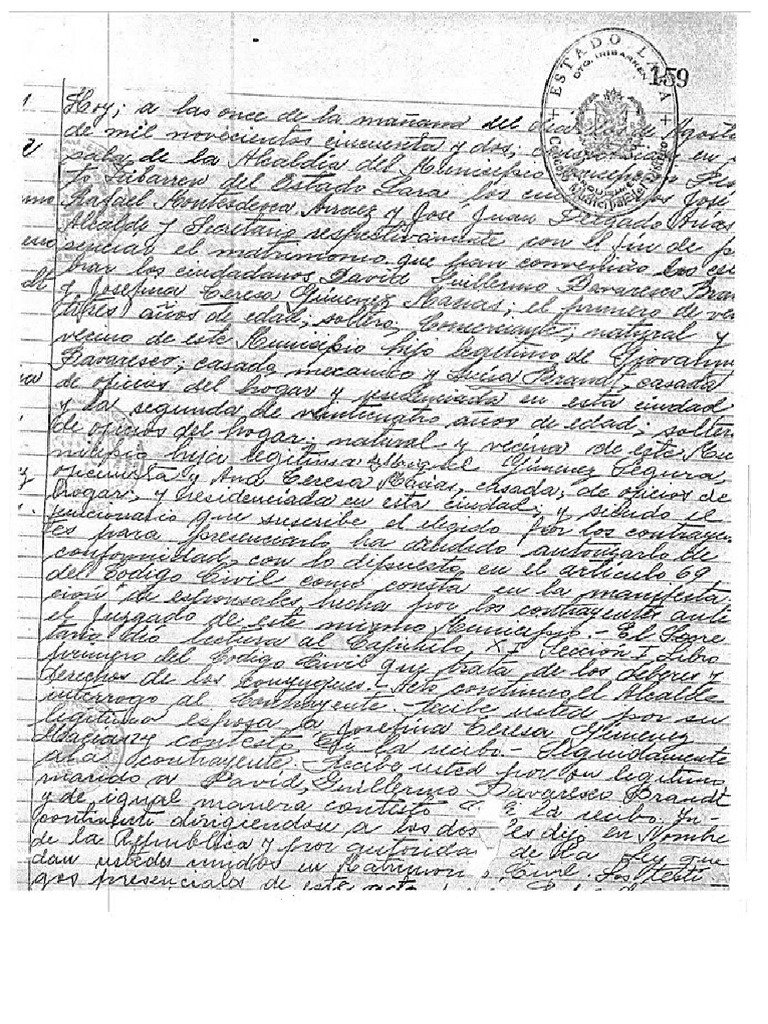 ESTADO LARA
DTO. IRIBARREN
159
Hoy; a las once de la mañana del de Agosto
de mil novecientos cincuenta y dos, en
de la Alcaldía del Municipio
del Estado Lara los José
Rafael Montesdeoca y José Juan Arias
Alcalde y Secretario respectivamente con el fin de p
senciar el matrimonio que han convenido
brar los ciudadanos David Guillermo Bavaresco Bran
y Josefina Teresa Gimenez Macias; el primero de vei
titres años de edad, soltero, Comerciante, natural y
vecino de este Municipio hijo legitimo de Giovanni
Bavaresco; casado mecanico y Luisa Brand, casada
de oficios del hogar y residenciada en esta ciudad
y la segunda de veinticuatro años de edad; solter
de oficios del hogar; natural y vecina de este Mu
nicipio hija legitima Gimenez Segura,
oficinista y Ana Teresa Macias, casada, de oficios de
hogar; y residenciada en esta ciudad; y siendo el
funcionario que suscribe el elegido por los contrayen
tes para presenciarlo ha decidido autorizarlo de
conformidad con lo dispuesto en el articulo 69
del Codigo Civil como consta en la manifesta
cion de esponsales hecha por los contrayentes ante
el Juzgado de este mismo Municipio.- El Secre
tario dio lectura al Capitulo XI Sección I Libro
primero del Codigo Civil que trata de los deberes y
derechos de los Conyugues.- Acto continuo, el Alcalde
interrogo al Contrayente.- recibe usted por su
legitima esposa a Josefina Teresa Gimenez
Macias y contestó Si la recibo.- Seguidamente
a la contrayente.- Recibe usted por su legitimo
marido a David Guillermo Bavaresco Brandt
y de igual manera contestó Si lo recibo. In-
continenti dirigiendose a los dos les dijo en Nombre
de la Republica y por autoridad de la Ley que
dan ustedes unidos en Matrimonio Civil. Los testi
gos presenciales de este acto